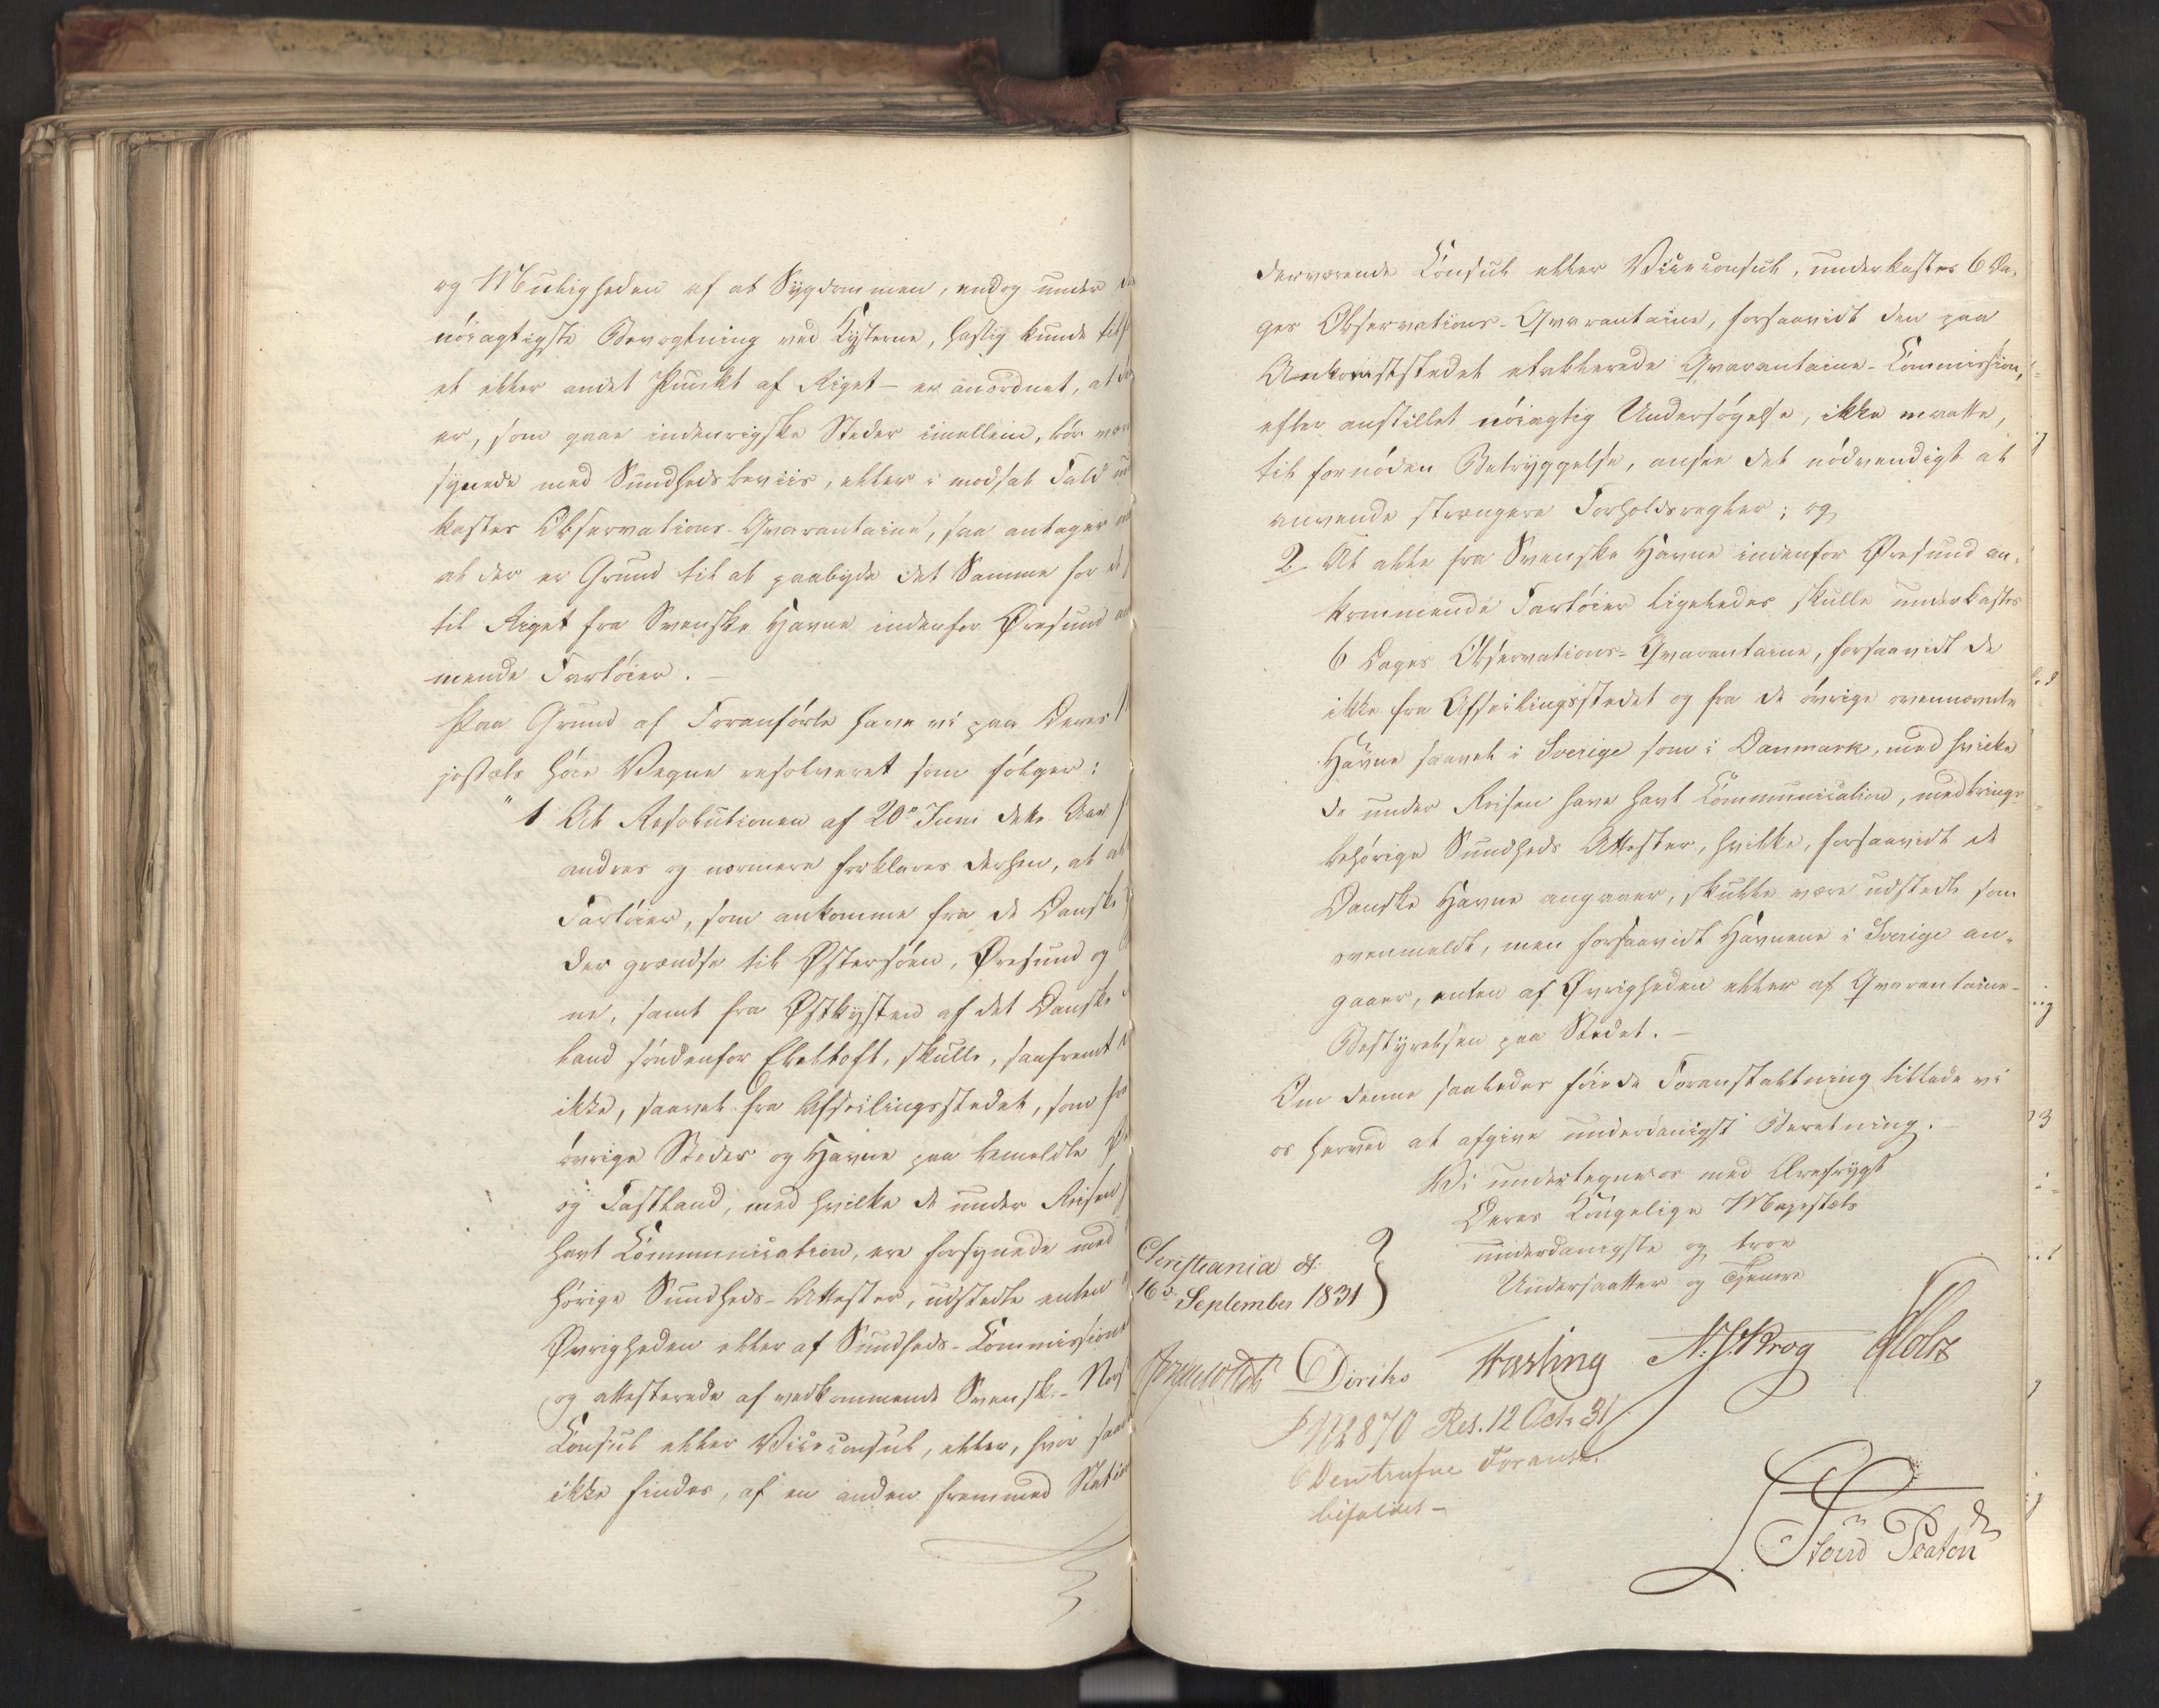 og Muligheden af at Sygdommen, endog under
nöiagtigste Bevogtning ved Kysterne, hastig kunde
et eller andet Punkt af Riget – er anordnet, at
er, som gaae indenrigske Steder imellem, bör
synede med Sundhedsbeviis, eller i modsat Fald
kastes Observations-Qvarantaine, saa antager
at der er Grund til at paabyde det Samme for
til Riget fra Svenske Havne indenfor Øresund
mende Fartöier. –
Paa Grund af Foranförte have vi paa Deres
jestæts höie Vegne resolveret som fölger:
" 1 At Resolutionen af 20de Juni dette Aar
andres og nærmere forklares derhen, at
Fartöier, som ankomme fra de Danske
der grændse til Östersöen, Øresund og
ne, samt fra Østkysten af det Danske
land söndenfor Ebeltoft, skulle, saafremt
ikke, saavel fra Afseilingsstedet, som fra
övrige Steder og Havne paa bemeldte
og Fastland, med hvilke de under Reisen
havt Communication, ere forsynede med
hörige Sundheds-Attester, udstedte enten
Øvrigheden eller af Sundheds-Commissioner
og attesterede af vedkommende Svensk-
Consul eller Viceconsul, eller, hvor
ikke findes, af en anden fremmed
derværende Consul eller Viceconsul, underkastes 6 Da-
ges Observations-Qvarantaine, forsaavidt den paa
Ankomststedet etablerede Qvarantaine-Commission,
efter anstillet nöiagtig Undersögelse, ikke maatte,
til fornöden Betryggelse, ansee det nödvendigt at
anvende strængere Forholdsregler; og
2 At alle fra Svenske Havne indenfor Øresund an-
kommende Fartöier ligeledes skulle underkastes
6 Dages Observations-Qvarantaine, forsaavidt de
ikke fra Afseilingsstedet og fra de övrige ovennævnte
Havne saavel i Sverige som i Danmark, med hvilke
de under Reisen have havt Communication, medbringe
behörige Sundheds Attester, hvilke, forsaavidt de
Danske Havne angaaer, skulle være udstedte som
ovenmeldt, men forsaavidt Havnene i Sverige an-
gaaer, enten af Øvrigheden eller af Qvarantaine-
Bestyrelsen paa Stedet. –
Om denne saaledes föiede Foranstaltning tillade vi
os herved at afgive underdanigst Beretning. –
Vi undertegne os med Ærefrygt
Deres Kongelige Majestæts
underdanigste og troe
Undersaatter og Tjenere
Christiania d:
16de September 1831
Diriks Fasting N. J. Krog Holst
870 Res. 12 Oct. 31
Den trufne Foranst.
bifaldes –